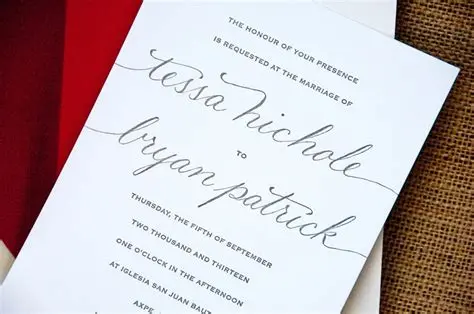 THE HONOUR OF YOUR PRESENCE
IS REQUESTED AT THE MARRIAGE OF
tessa nichole
TO
bryan patrick
THURSDAY, THE FIFTH OF SEPTEMBER
TWO THOUSAND AND THIRTEEN
ONE O'CLOCK IN THE AFTERNOON
AT IGLESIA SAN JUAN BAUT
AXPE